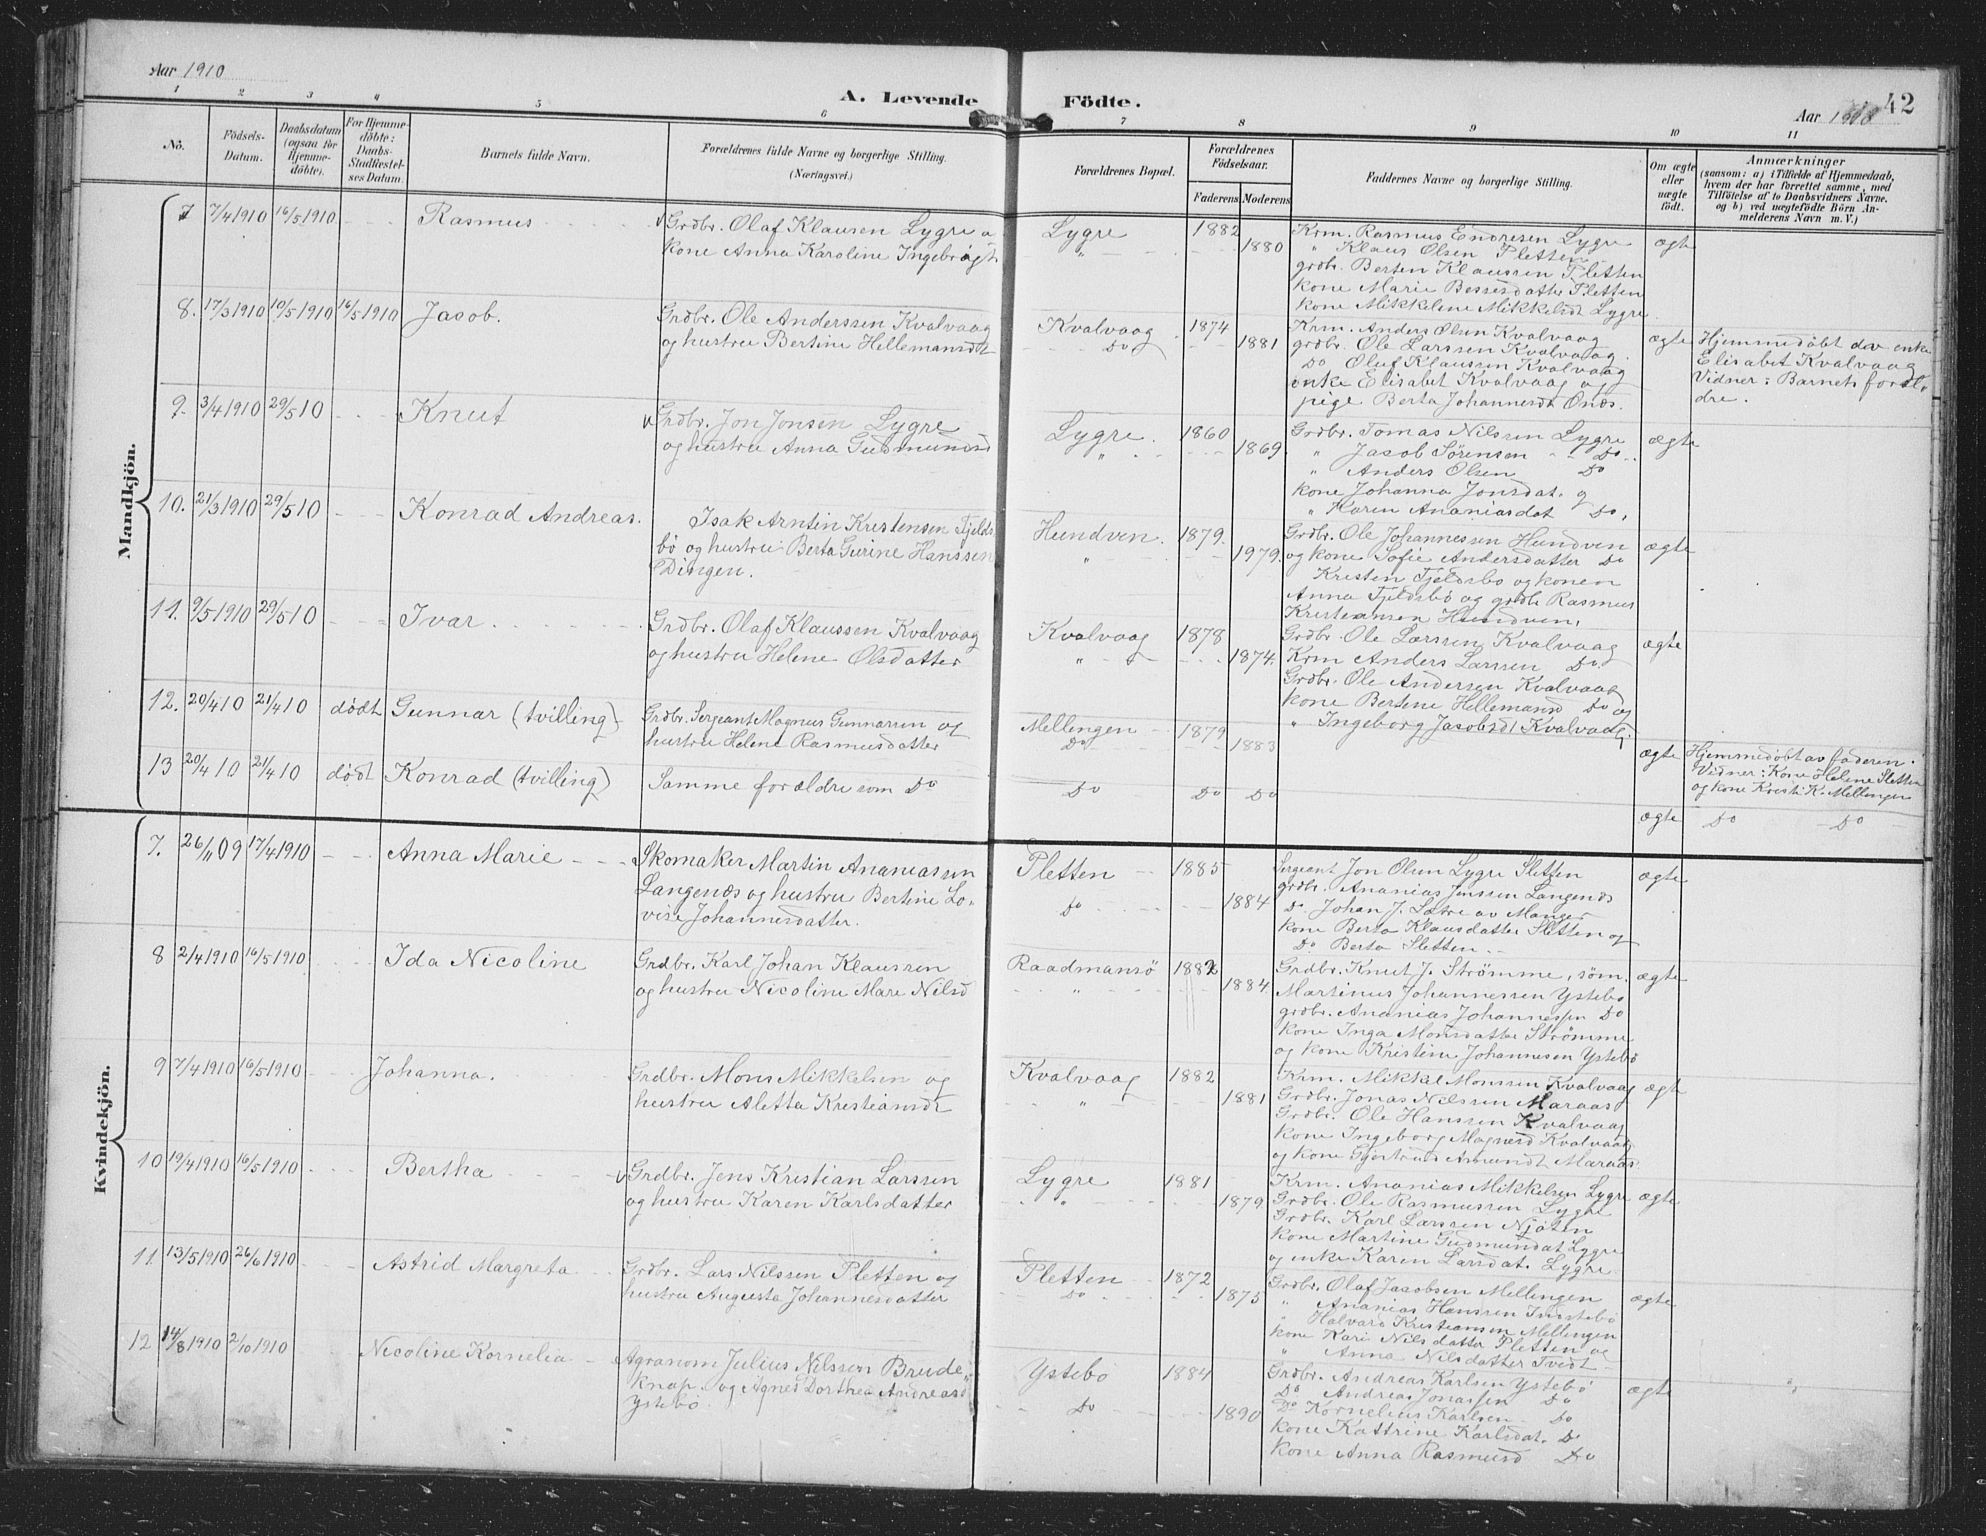 Aar 1910
A. Levende Födte.
Aar 1910
42
1 2 3 4 5 6 7 8 9 10 11
No.
Födsels-Datum.
Daabsdatum (ogsaa for Hjemme-döbte).
For Hjemme-döbte: Daabs-Stadfæstelses Datum.
Barnets fulde Navn.
Forældrenes fulde Navne og borgerlige Stilling. (Næringsvei.)
Forældrenes Bopæl.
Forældrenes Födselsaar.
Faderens Moderens
Faddernes Navne og borgerlige Stilling.
Om ægte eller uægte födt.
Anmærkninger
(saasom: a) i Tilfælde af Hjemmedaab, hvem der har forrettet samme, med Tilföielse af to Daabsvidners Navne, og b) ved uægtefödte Börn Anmelderens Navn m. V.)
Mandkjön.
7 7/4 1910 16/5 1910 Rasmus
Grdbr. Olaf Klausen Lygre o
kone Anna Karoline Ingebrigt
Lygre 1882
" 1880
Krm. Rasmus Endresen Lygre
" Klaus Olsen Pletten
grdbr. Berten Klaussen Pletten
kone Marie Bessesdatter Pletten
kone Mikkelene Mikkelsdt Lygre
ægte
8. 17/3 1910 10/5 1910 16/5 1910 Jacob.
Grdbr. Ole Anderssen Kvalvaag
og hustru Bertine Hellemansdt
Kvalvaag 1874
Do 1881
Krm. Anders Olsen Kvalvaag
grdbr. Ole Larssen Kvalvaag.
Do Oluf Klaussen Kvalvaag
enke Elisabet Kvalvaag og
pige Berta Johannesdt Onds.
ægte
Hjemmedøbt av enke
Elisabet Kvalvaag
Vidner: Barnets foræl-
dre.
9. 3/4 1910 29/5 10 Knut
Grdbr. Jon Jonsen Lygre
og hustru Anna Gudmunds
Lygre. 1860
" 1869
Grdbr. Tomas Nilsen Lygre
" Jacob Sørensen Do
" Anders Olsen Do
kone Johanna Jonsdat. og
" Karen Ananiasdat Do.
ægte
10. 21/3 1910 29/5 10 Konrad Andreas.
Isak Arntin Kristensen Fjelds
bö og hustru Berta Gurine Hanssen
Dingen.
Hundven. 1879.
" 1979.
Grdbr. Ole Johannessen Hundven
og kone Sofie Andersdatter Do
Kristen Fjeldsbo og konen
Anna Fjeldsbö og grdbr Rasmus
Kristeansen Hundven.
ægte
11. 9/5 1910 29/5 10 Ivar
Grdbr. Olaf Klaussen Kvalvaag
og hustru Helene Olsdatter
Kvalvaag 1878
" 1874.
Grdbr. Ole Larssen Kvalvaag
Krm Anders Larssen Do.
Grdbr. Ole Andersen Kvalvaag
kone Bertene Hellemansd Do og
" Ingeborg Jacobsdt Kvalvaag.
ægte
12. 20/4 10 21/4 10 dödt Gunnar (tvilling)
Grdbr. Sergeant Magnus Gunnarsen og
hustru Helene Rasmusdatter
Mellingen 1879
Do 1883
ægte
Hjemmedøbt av faderen.
Vidner: Kone Helene Sletten
og kone Kristi K. Mellingen
13 20/4 10 21/4 10 dödt Konrad (tvilling)
Samme forældre som Do
Do Do Do
ægte Do Do
Kvindekjön.
7. 26/11 09 17/4 1910 Anna Marie
Skomaker Martin Ananiassen
Langenæs og hustru Bertine Lo-
vise Johannesdatter.
Pletten 1885
Do 1884
Sergeant Jon Olsen Lygre Sletten
grdbr. Ananias Jenssen Langenæs
Do Johan J. Sætre av Manger
kone Berta Klausdatter Sletten og
Do Berta Sletten.
ægte
8 2/4 1910 16/5 1910 Ida Nicoline
Grdbr. Karl Johan Klaussen
og hustru Nicoline Mare Nilsd
Raadmansö 1882
" 1884
Grdbr. Knut J. Strömme, söm.
Martinus Johannessen Ystebö
grdbr. Ananias Johannessen Do
kone Inga Monsdatter Strömme
og kone Kristine Johannesen Ystebö
ægte
9 7/4 1910 16/5 1910 Johanna.
Grdbr. Mons Mikkelsen og
hustru Aletta Kristiansdt
Kvalvaag 1882
" 1881
Krm. Mikkal Monssen Kvalvaag
Grdbr. Jonas Nelssen Maraas
Grdbr. Ole Hanssen Kvalvaag
kone Ingeborg Magnesd Kvalvaag
og kone Gjertrud Amundt Maraas
ægte
10 19/4 1910 16/5 1910 Bertha
Grdbr. Jens Kristian Larssen
og hustru Karen Karlsdatter
Lygre 1881
" 1879
Krm. Ananias Mikkelsen Lygre
Grdbr. Ole Rasmussen Lygre
Grdbr. Karl Larssen Njöten
kone Martine Gudmundat Lygre
og enke Karen Larsdat. Lygre
ægte
11. 13/5 1910 26/6 1910 Astrid Margreta
Grdbr. Lars Nilssen Pletten og
hustru Augusta Johannesdatter
Pletten 1872
Do 1875
Grdbr. Olaf Jacobsen Mellingen
" Ananias Hanssen Indstebö
" Halvard Kristiansen Mellingen
kone Kari Nilsdatter Pletten og
" Anna Nilsdatter Tvedt
ægte
12 14/8 1910 2/10 1910 Nicoline Kornelia
Agranom Julius Nilssen Brude-
knap. og Agnes Dorthea Andreasd
Ystebö.
Ystebö 1884
Do 1890
Grdbr. Andreas Karlsen Ystebö
Do Andreas Jonassen Do
Do Kornelius Karlsen Do
kone Kattrine Karlsdat. Do
kone Anna Rasmusd Do
ægte